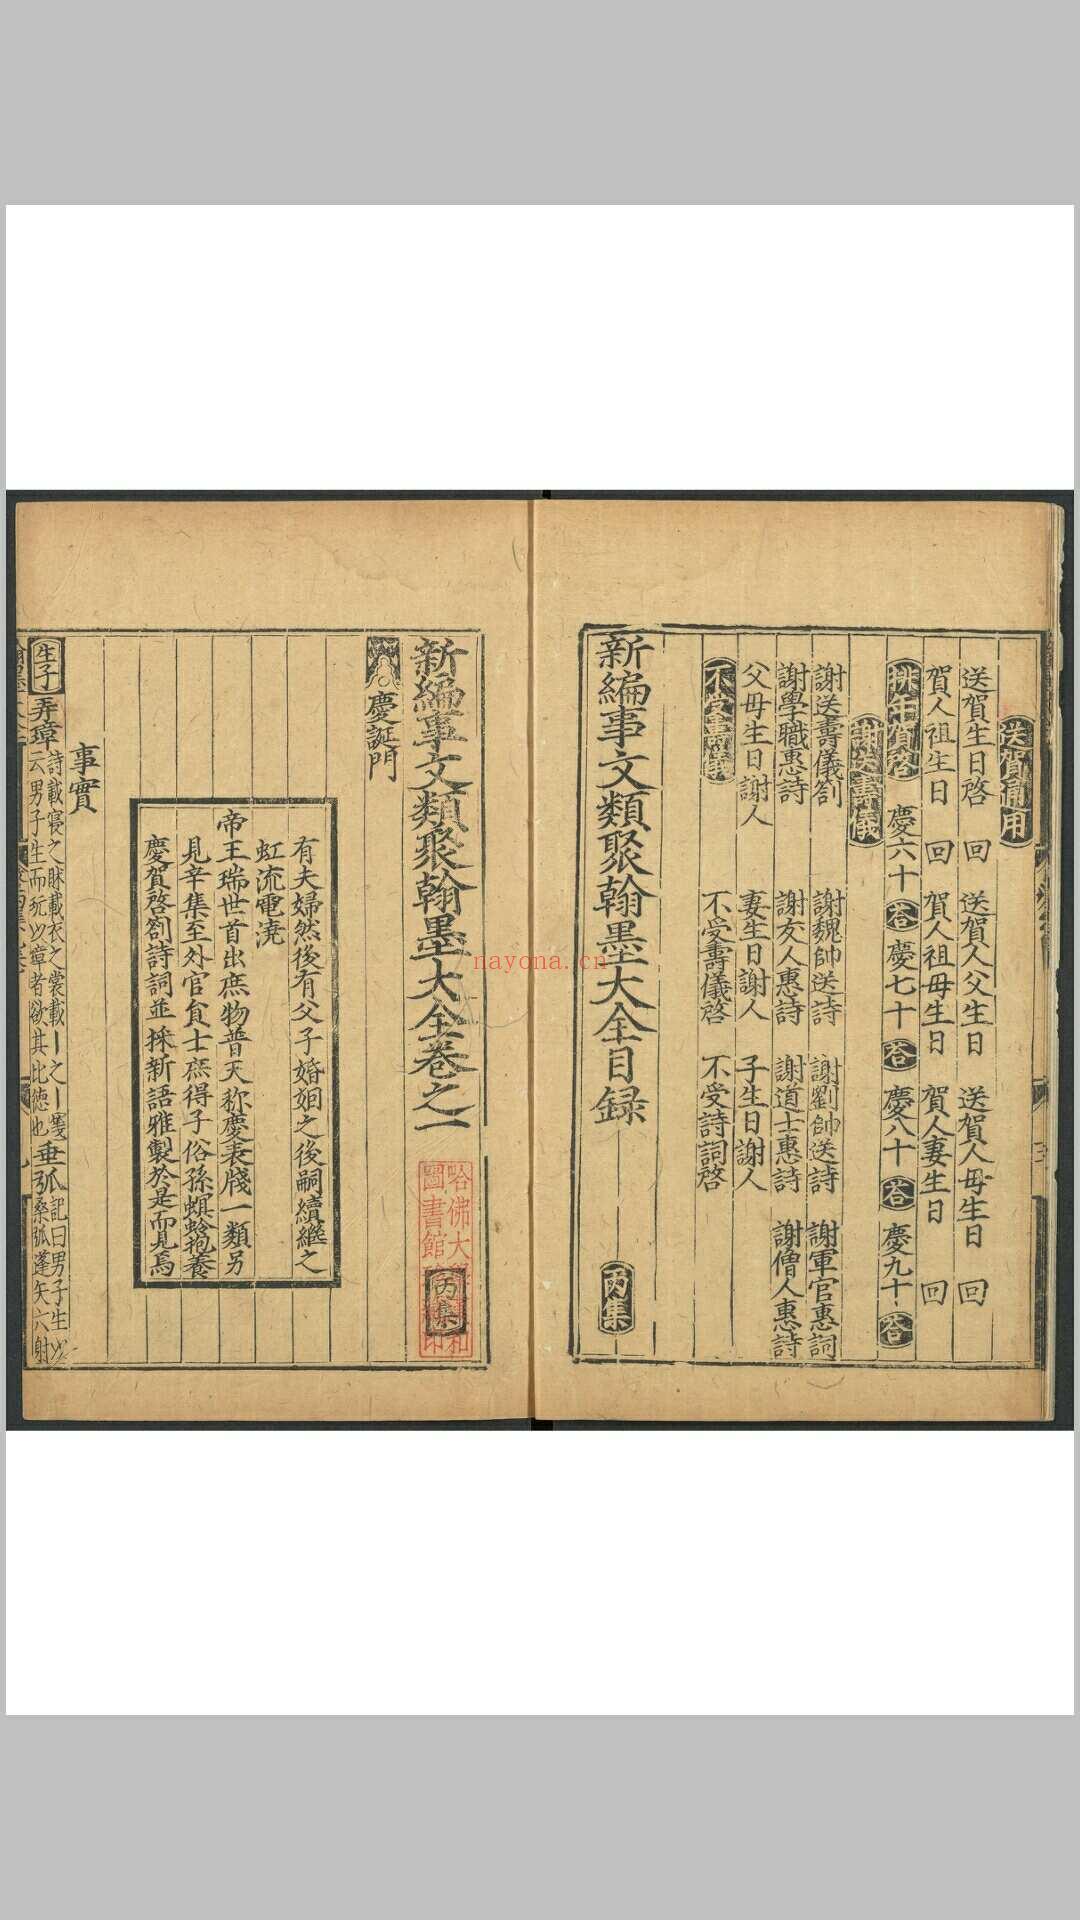 送賀通用
送賀生日啓　回　送賀人父生日　送賀人母生日　回
賀人祖生日　回　賀人祖母生日　賀人妻生日　回
慶六十　答　慶七十　答　慶八十　答　慶九十　答
謝送壽儀
謝送壽儀劄　謝魏帥送詩　謝劉帥送詩　謝軍官惠詞
謝學職惠詩　謝友人惠詩　謝道士惠詩　謝僧人惠詩
父母生日謝人　妻生日謝人　子生日謝人
不受壽儀　不受壽儀啓　不受詩詞啓
新編事文類聚翰墨大全目録　丙集
新編事文類聚翰墨大全卷之一　丙集
哈佛大
圖書館
印
慶誕門
有夫婦然後有父子婚姻之後嗣續繼之
虹流電澆
帝王瑞世首出庶物普天称慶表牋一類另
見辛集至外官貟士庶得子俗孫螟蛉抱養
慶賀啓劄詩詞並採新語雅製於是而見焉
事實
生子　弄璋　詩載寝之牀載衣之裳載｜之｜箋
云男子生而玩以璋者欲其比德也　垂弧　記曰男子生以
桑弧蓬矢六射
nayona.cn